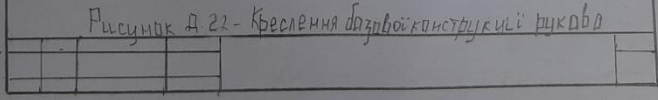 Рисунок Д 22 - Креслення базової конструкції рукава